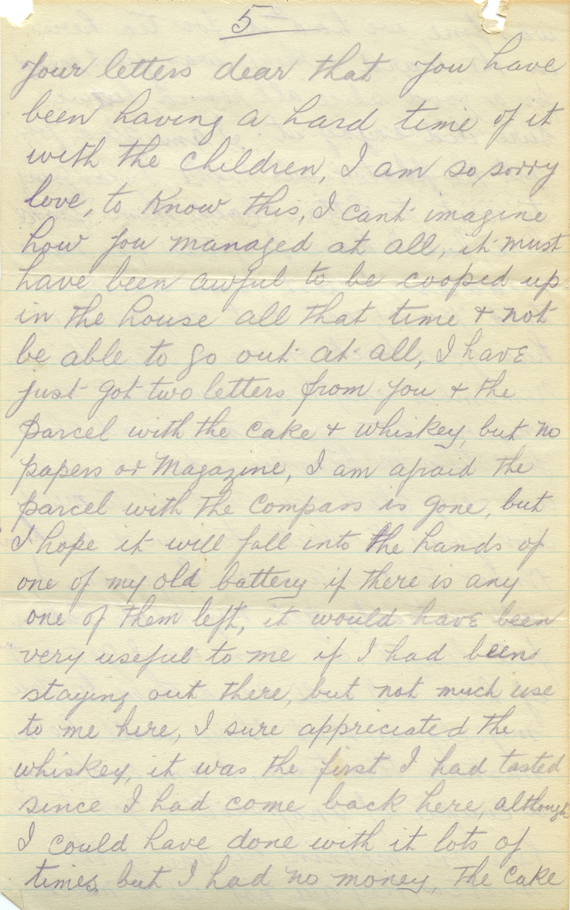 5
Your letters dear that you have
been having a hard time of it
with the children, I am so sorry
love, to know this, I cant imagine
how you managed at all, it must
have been awful to be cooped up
in the house all that time + not
be able to go out at all, I have
just got two letters from you + the
parcel with the cake + whiskey, but no
papers or Magazine, I am afraid the
parcel with the compass is gone, but
I hope it will fall into the hands of
one of my old battery if there is any
one of them left, it would have been
very useful to me if I had been
staying out there, but not much use
to me here, I sure appreciated the
whiskey, it was the first I had tasted
since I had come back here, although
I could have done with it lots of
times, but I had no money, The cake